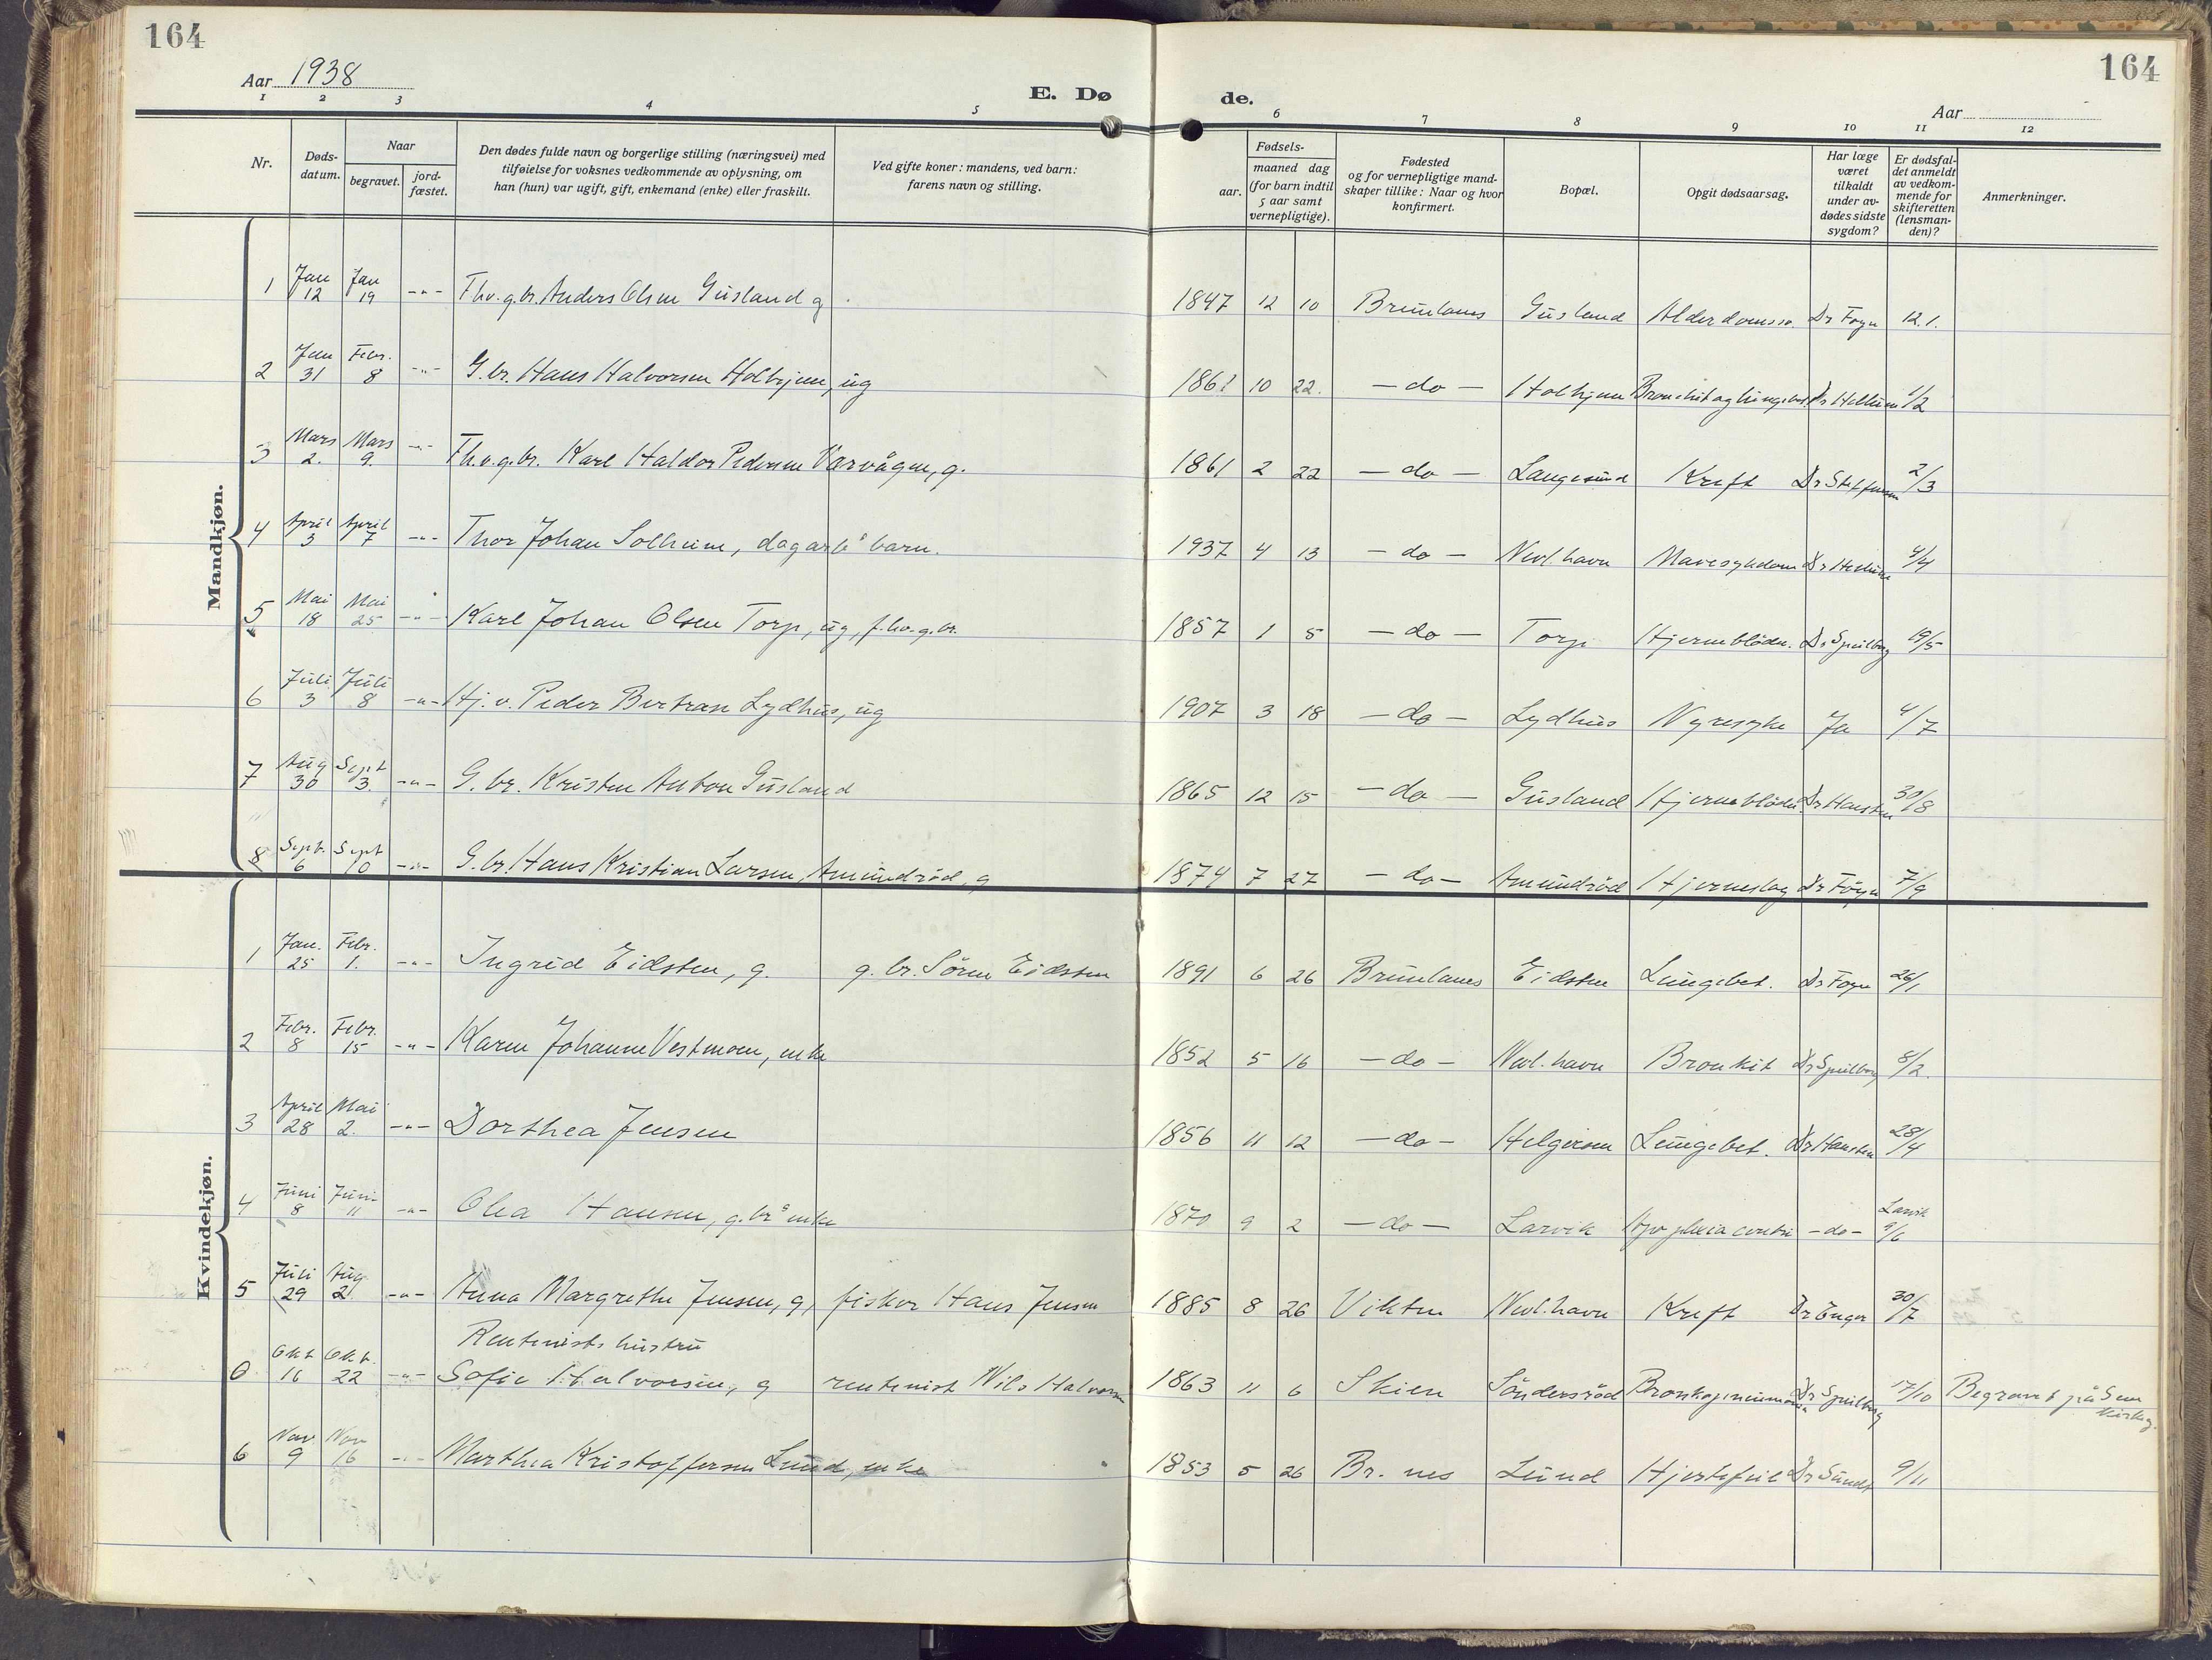 164
164
Aar 1938
E. Dø
de.
Aar
1 2 3 4 5 6 7 8 9 10 11 12
Nr.
Døds-
datum.
Naar
begravet.
jord-
fæstet.
Den dødes fulde navn og borgerlige stilling (næringsvei) med
tilføielse for voksnes vedkommende av oplysning, om
han (hun) var ugift, gift, enkemand (enke) eller fraskilt.
Ved gifte koner: mandens, ved barn:
farens navn og stilling.
Fødsels-
aar.
maaned dag
(for barn indtil
5 aar samt
vernepligtige).
Fødested
og for vernepligtige mand-
skaper tillike: Naar og hvor
konfirmert.
Bopæl.
Opgit dødsaarsag.
Har læge
været
tilkaldt
under av-
dødes sidste
sygdom?
Er dødsfal-
det anmeldt
av vedkom-
mende for
skifteretten
(lensman-
den)?
Anmerkninger.
Mandkjøn.
1 Jan 12 Jan 19 -"- Fhv. g.br. Anders Olsen Gusland g 1847 12 10 Brunlanes Gusland Alderdomssv. Dr Foyn 12.1.
2 Jan 31 Febr. 8 -"- G.br. Hans Halvorsen Holhjem, ug 10 22. - do - Holhjem Bronchit og lungebet. Dr Hellum 1/2
3 Mars 2. Mars 9. -"- Fh.v.g.br. Karl Haldor Pedersen Varvågen, g. 1861 2 22 - do - Langesund Kreft Dr Steffensen 2/3
4 April 3 April 7 -"- Thor Johan Solheim, dagarbs barn. 1937 4 13 - do - Nevl.havn Mavesykdom 4/4
5 Mai 18 Mai 25 -"- Karl Johan Olsen Torp, ug, f.hv.g.br. 1857 1 5 - do - Torp Hjerneblödn. Dr Speilberg 19/5
6 Juli 3 Juli 8 -"- Hj. v. Peder Bertran Lydhus, ug 1907 3 18 - do - Lydhus Nyresyke Ja 4/7
7 Aug 30 Sept 3. -"- G. br. Kristen Anton Gusland 1865 12 15 - do - Gusland Hjerneblödn. Dr Hansten 30/8
8 Sept. 6 Sept 10 -"- G.br. Hans Kristian Larsen, Amundröd, g 1874 7 27 - do - Amundröd Hjerneslag Dr Föyn 7/9
Kvindekjøn.
1 Jan. 25 Febr. 1. -"- Ingrid Eidsten, g. g. br. Sören Eidsten 1891 6 26 Brunlanes Eidsten Lungebet. Dr Foyn 26/1
2 Febr. 8 Febr. 15 -"- Karen Johanne Vestmoen, enke 1852 5 16 - do - Nevl.havn Bronkit Dr Speilberg 8/2.
3 April 28 Mai 2. -"- Dorthea Jensen 1856 11 12 - do - Helgeroen Lungebet. Dr Hansten 28/4
4 Juni 8 Juni 11 -"- Olea Hansen, g.brs enke 1870 9 2 - do - Larvik Apoplexia - do - Larvik 9/6
5 Juli 29 Aug 2. -"- Anna Margrethe Jensen, g, fisker Hans Jensen 1885 8 26 Vikten Nevl.havn Kreft Dr Enger 30/7
Rentenists hustru
Okt 16 Okt. 22 -"- Sofie Halvorsen, g rentenist Nils Halvorsen 1863 11 6 Skien Söndersröd Bronkopneumonia Dr Speilberg 17/10 Begravet på Sem kirkeg.
6 Nov. 9 Nov 16 -"- Marthea Kristoffersen Lund, enke 1853 5 26 Br. nes Lund Hjertefeil Dr Sundt 9/11